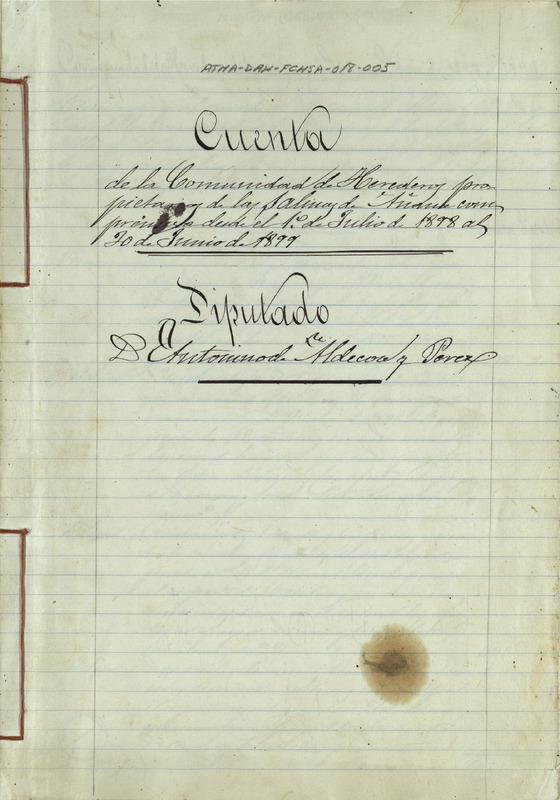 ATHA-DAH-FCHSA-018-005
Cuenta
de la Comunidad de Herederos pro
pietarios de las Salinas de Añana com
prensiva desde el 1º de Julio de 1898 al
30 de Junio de 1899
Diputado
Dn Antonino de Aldecoa y Perez